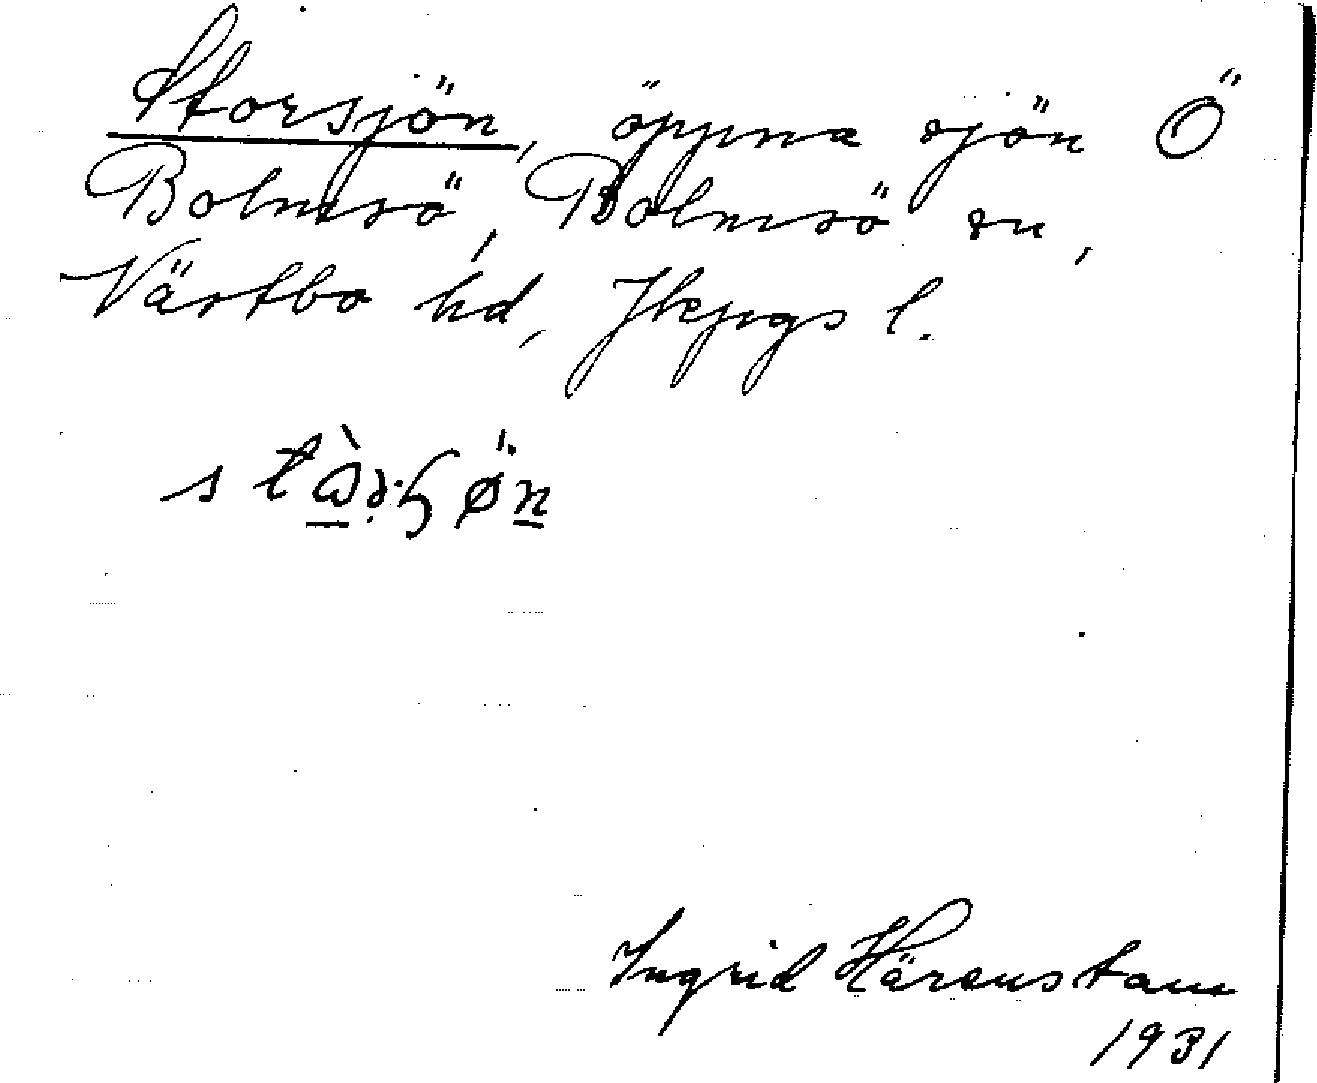 Storsjön, öppna sjön Ö
Bolmsö, Bolmsö sn,
Västbo hd, Jkpgs l.
Ingrid Härenstam
1931